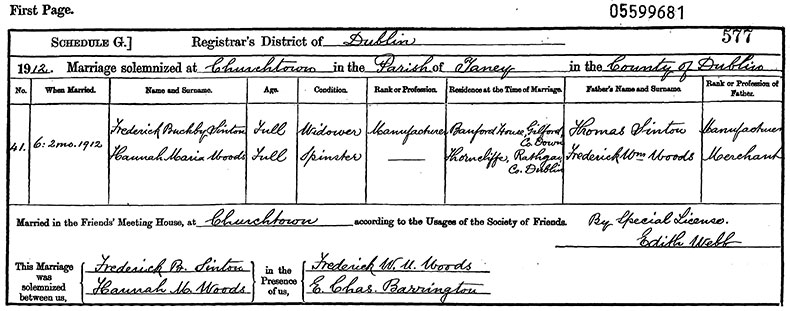 First Page.
05599681
SCHEDULE G.] Registrar's District of Dublin 577
1912. Marriage solemnized at Churchtown in the Parish of Taney in the County of Dublin
No. When Married. Name and Surname. Age. Condition. Rank or Profession. Residence at the Time of Marriage. Father's Name and Surname. Rank or Profession of Father.
41. 6: 2mo. 1912
Frederick Buckby Sinton Full Widower Manufacturer Banford House, Gilford, Co. Down Thomas Sinton Manufacturer
Hannah Maria Woods Full Spinster — Thorncliffe, Rathgar, Co. Dublin Frederick Wm Woods Merchant
Married in the Friends' Meeting House, at Churchtown according to the Usages of the Society of Friends. By Special License.
Edith Webb
This Marriage was solemnized between us,
Frederick B. Sinton
Hannah M. Woods
in the Presence of us,
Frederick W. U. Woods
E. Chas. Barrington